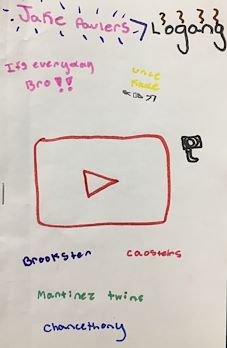 Jake Paulers > Logang
It's everyday
Bro!!
Brookster
Caosters
Martinez twins
Chancethony